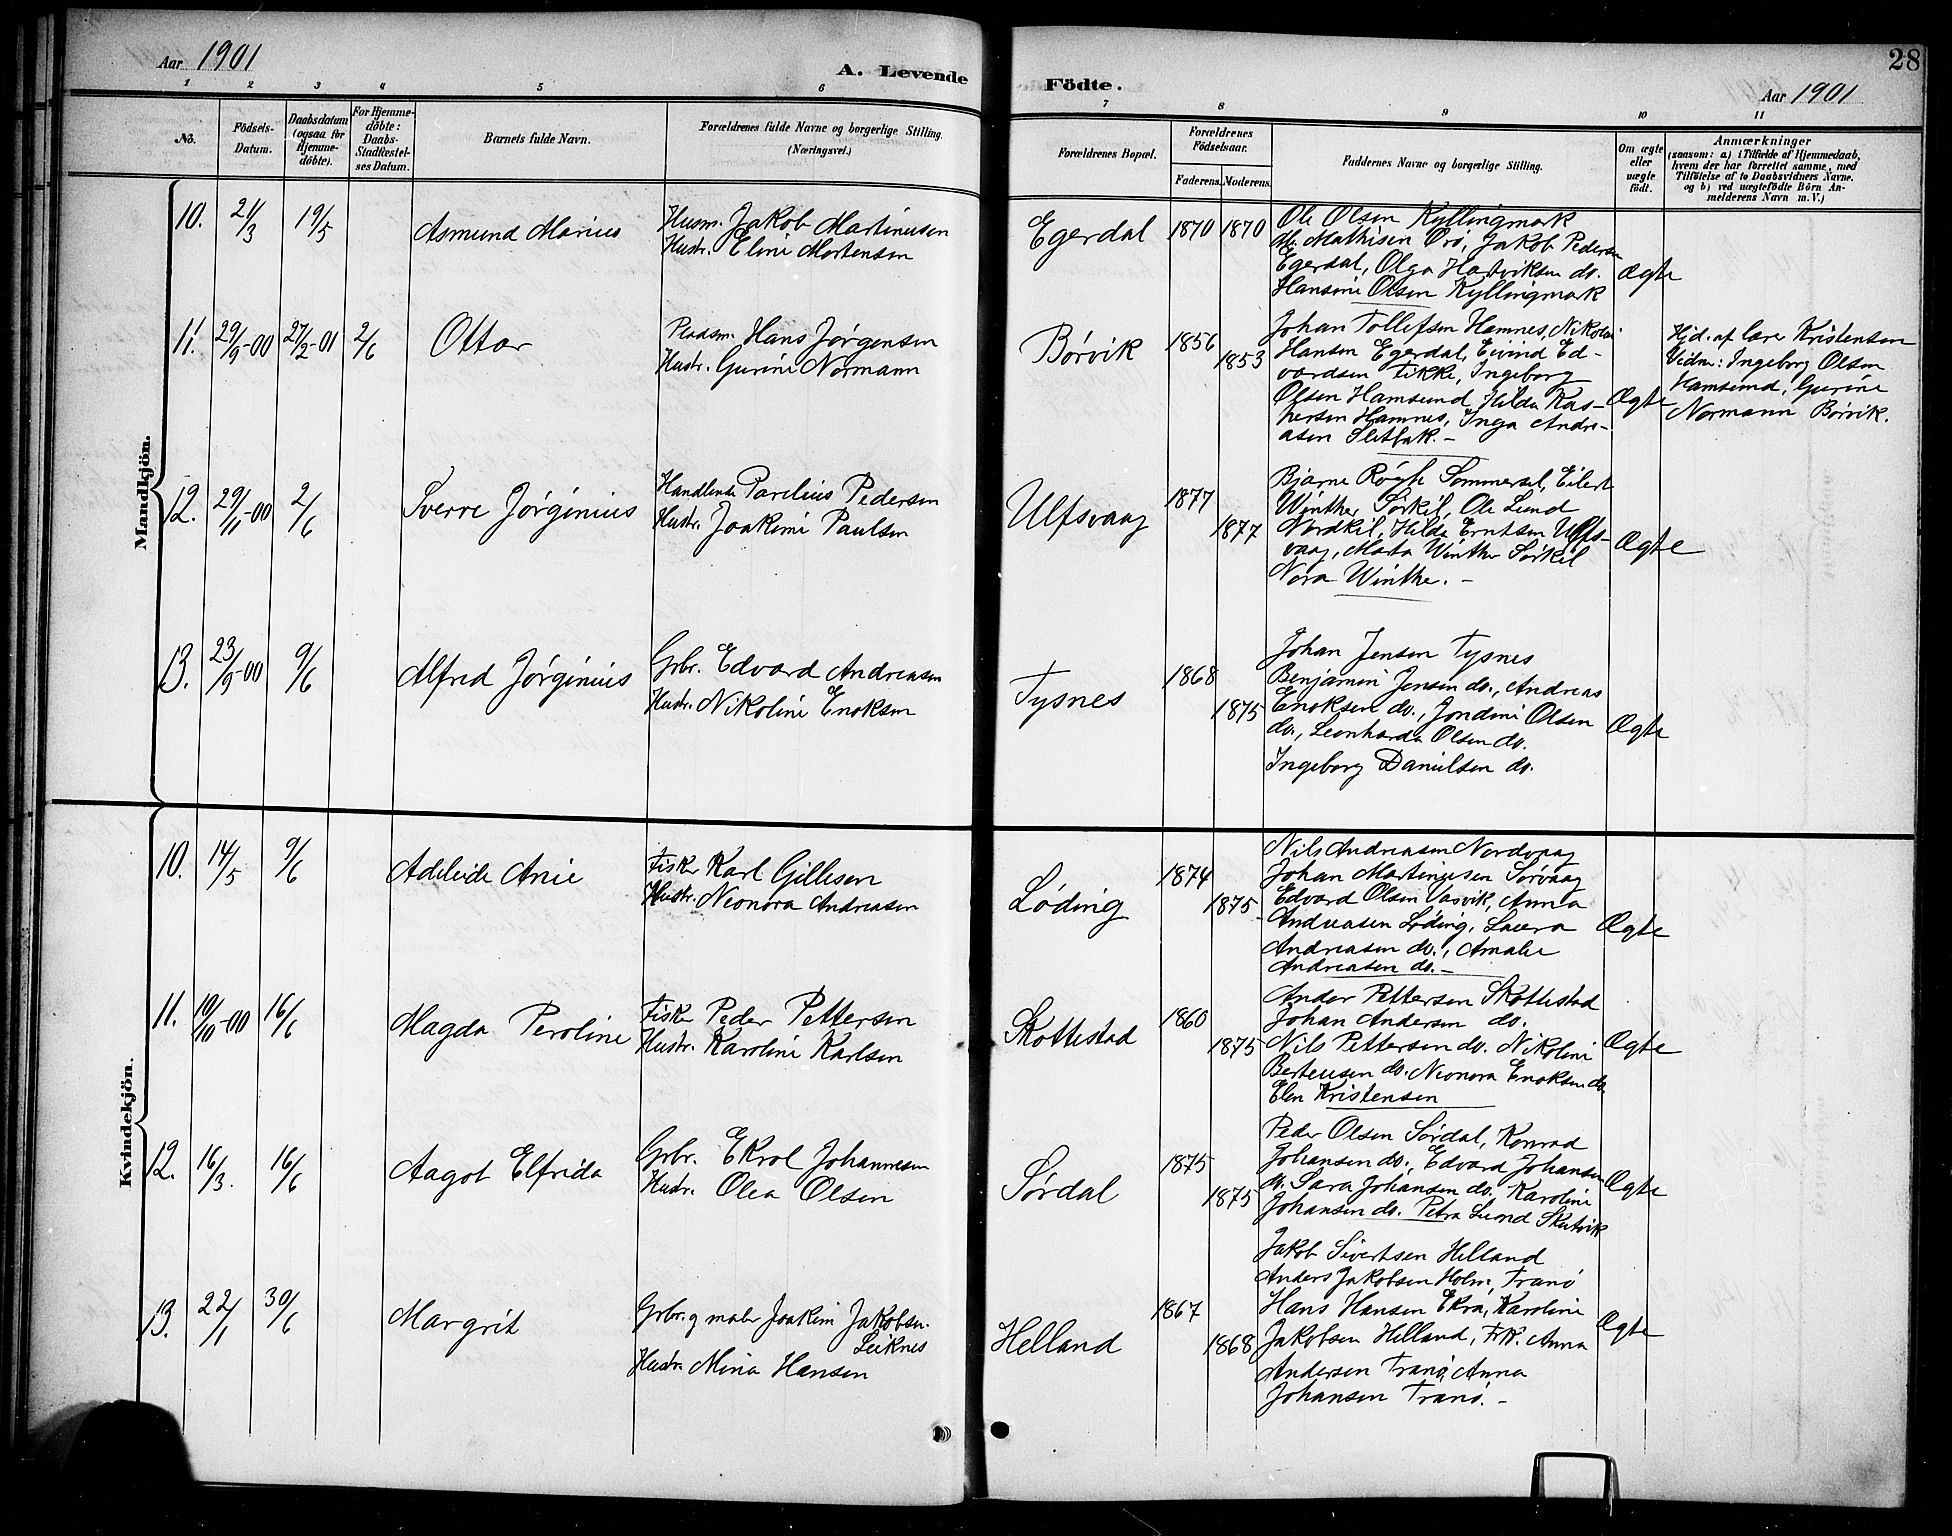 Aar 1901
A. Levende
Mandkjön.
Kvindekjön.
1 2 3 4 5 6
No.
Födsels-
Datum.
Daabsdatum
(ogsaa for
Hjemme-
döbte).
For Hjemme-
döbte:
Daabs-
Stadfæstel-
ses Datum.
Barnets fulde Navn.
Forældrenes fulde Navne og borgerlige Stilling.
(Næringsvei.)
10. 21/3 19/5 Asmund Marius
Husm. Jakob Martinusen
Hustr. Eline Mortensen
11. 29/9-00 27/2-01 2/6 Ottar
Pladsm. Hans Jørgensen
Hustr. Gurine Normann
12. 29/11-00 2/6 Sverre Jørginius
Handlende Parelius Pedersen
Hustr. Joakime Paulsen
13. 23/9-00 9/6 Alfred Jørginius
Grbr. Edvard Andreasen
Hustr. Nikoline Enoksen
10. 14/5 9/6 Adeleide Anie
Fisker Karl Gillesen
Hustr. Neonora Andreasen
11. 19/10-00 16/6 Magda Peroline
Fisker Peder Pettersen
Hustr. Karoline Karlsen
12. 16/3. 16/6 Aagot Elfrida
Grbr. Ekrol Johannesen
Hustr. Olea Olsen
13. 22/1 30/6 Margrit
Grbr. g maler Joakim Jakobsen
Leiknes
Hustr. Mina Hansen
28
Födte.
Aar 1901
7 8 9 10 11
Forældrenes Bopæl.
Forældrenes
Födselsaar.
Faderens. Moderens.
Faddernes Navne og borgerlige Stilling.
Om ægte
eller
uægte
födt.
Anmærkninger
(saasom: a) i Tilfælde af Hjemmedaab,
hvem der har forrettet samme, med
Tilföielse af to Daabsvidners Navne.
og b) ved uægtefödte Börn An-
melderens Navn m. V.)
Egerdal 1870 1870
Ole Olsen Kyllingmark
M. Mathisen Orö, Jakob Pedersen
Egerdal, Olga Hartviksen do.
Hansine Olsen Kyllingmark
Ægte
Børvik 1856 1853
Johan Tollefsen Hamnes, Nikolai
Hansen Egerdal, Eivind Ed-
vardsen Fikke, Ingeborg
Olsen Hamsund, Hilda Kas-
persen Hamnes, Inga Andre-
asen Sletbak. -
Ægte
Hjd. af Lars Kristensen
Vidne: Ingeborg Olsen
Hamsund, Gurine
Normann Børvik.
Ulfsvaag 1877 1877
Bjarne Røgh Sommersel, Eilert
Winther Sørkil, Ole Lund
Nordkil, Hilda Erntsen Ulfs-
vaag, Marta Winther Sørkil
Nora Winther. -
Ægte
Tysnes 1868 1875
Johan Jensen Tysnes
Benjamin Jensen do., Andreas
Enoksen do., Jondine Olsen
do., Leonharda Olsen do.
Ingeborg Danielsen do.
Ægte
Løding 1874 1875
Nils Andreasen Nordvaag
Johan Martinusen Sørvaag
Edvard Olsen Vasvik, Anna
Andreasen Løding, Laura
Andreasen do., Amalie
Andreasen do. -
Ægte
Skottestad 1860 1875
Ander Pettersen Skottestad
Johan Andersen do.
Nils Pettersen do. Nikoline
Berteusen do. Neonora Enoksen do
Elen Kristensen
Ægte
Sørdal 1875 1875
Peder Olsen Sørdal, Konrad
Johansen do., Edvard Johansen
do. Sara Johansen do. Karoline
Johansen do. Petra Lund Skutvik
Ægte
Helland 1867 1868
Jakob Sivertsen Helland
Anders Jakobsen Holm, Tranö
Hans Hansen Ekra, Karoline
Jakobsen Helland, Frk. Anna
Andersen Tranö, Anna
Johansen Tranö. -
Ægte